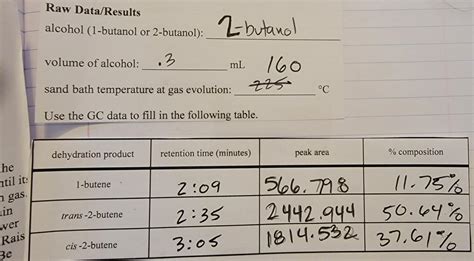 Raw Data/Results
alcohol (1-butanol or 2-butanol): 2-butanol
volume of alcohol: .3 mL 160
sand bath temperature at gas evolution: 225 °C
Use the GC data to fill in the following table.
dehydration product retention time (minutes) peak area % composition
1-butene 2:09 566.798 11.75%
trans-2-butene 2:35 2442.944 50.64%
cis-2-butene 3:05 1814.532 37.61%
he
ntil its
n gas.
in
wer
Rais
Be